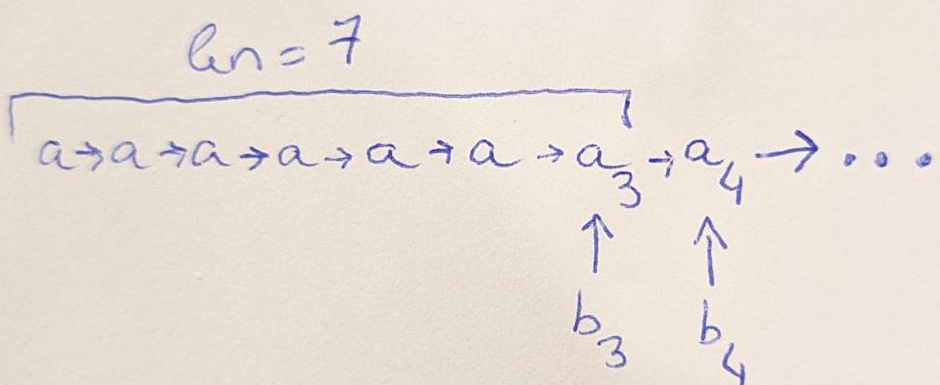 len = 7
a→a→a→a→a→a→a₃→a₄→...
↑ ↑
b₃ b₄